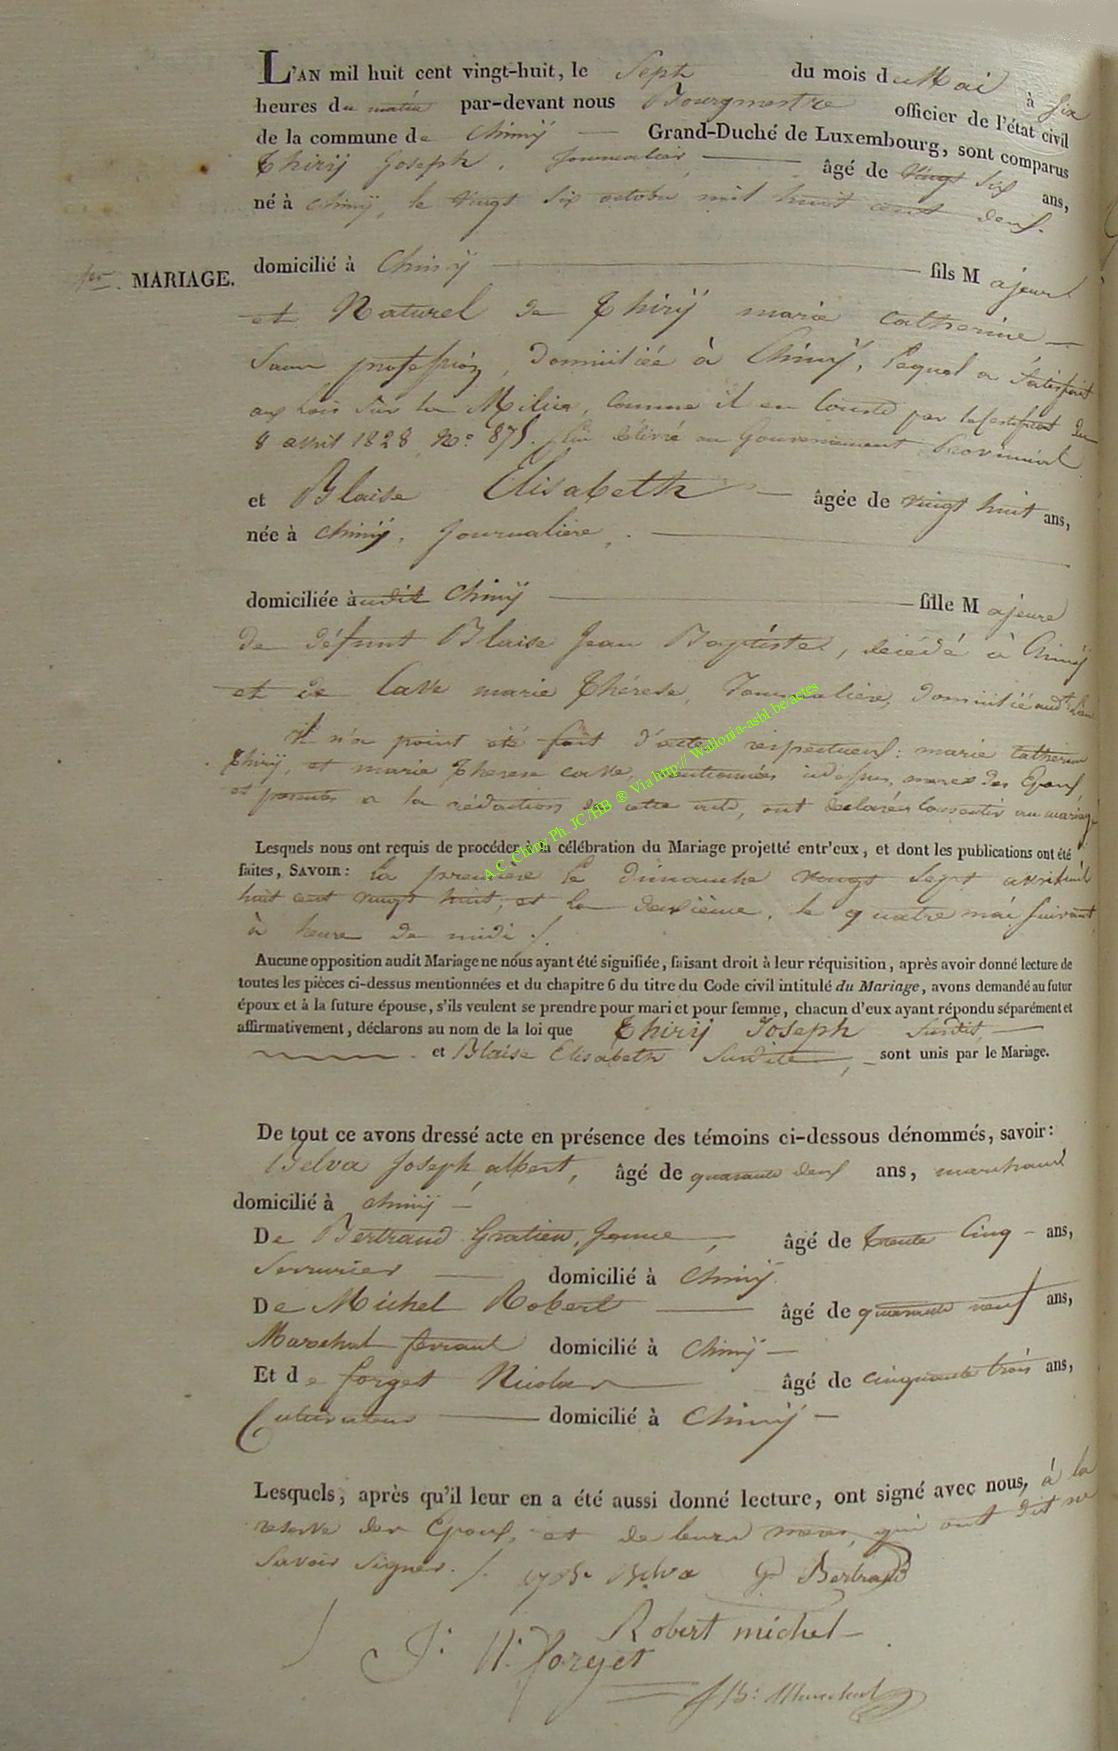 L'AN mil huit cent vingt-huit, le Sept du mois de Mai à Six
heures du matin par-devant nous Bourgmestre officier de l'état civil
de la commune de Chiny — Grand-Duché de Luxembourg, sont comparus
Thirÿ Joseph, Journalier, — âgé de vingt Six ans,
né à Chinÿ, le vingt Six octobre mil huit cent deux.
1er. MARIAGE.
domicilié à Chinÿ — fils Majeur
et Naturel de Thirÿ marie Catherine —
Sans profession, Domiciliée à Chinÿ, lequel a Satisfait
aux Lois Sur la Milice, Comme il en Conste par le Certificat du
8 avril 1828 No. 875. Lui délivré au Gouvernement Provincial
et Blaise Elisabeth — âgée de vingt huit ans,
née à Chinÿ, Journalière, —
domiciliée audit Chinÿ — fille Majeure
De défunt Blaise Jean Baptiste, décédé à Chinÿ
et de Cave marie Thérese, Journalière, Domiciliée audt. Lieu
Il n'a point été fait d'actes respectueux: marie Catherine
Thirÿ, et marie Therese Cave, mentionnées cidessus, meres des Epoux,
et presentes a la rédaction de cette acte, ont declarées Consentir au mariage
A.C. Chiny Ph. JC/HB ® Via http:// Wallonia-asbl.be/actes
Lesquels nous ont requis de procéder à la célébration du Mariage projetté entr'eux, et dont les publications ont été
faites, SAVOIR: La première le Dimanche vingt Sept avril mil
huit cent vingt huit, et la deuxième, le quatre mai suivant
à heure de midi /.
Aucune opposition audit Mariage ne nous ayant été signifiée, faisant droit à leur réquisition, après avoir donné lecture de
toutes les pièces ci-dessus mentionnées et du chapitre 6 du titre du Code civil intitulé du Mariage, avons demandé au futur
époux et à la future épouse, s'ils veulent se prendre pour mari et pour femme, chacun d'eux ayant répondu séparément et
affirmativement, déclarons au nom de la loi que Thirÿ Joseph Susdit —
et Blaise Elisabeth Susdite, — sont unis par le Mariage.
De tout ce avons dressé acte en présence des témoins ci-dessous dénommés, savoir:
Belva Joseph albert, âgé de quarante deux ans, marchand
domicilié à Chinÿ —
De Bertrand Gratien, Jeune —, âgé de trente Cinq - ans,
Serrurier — domicilié à Chinÿ.
De Michel Robert — âgé de quarante neuf ans,
Marechal ferrant domicilié à Chinÿ —
Et de forget Nicolas — âgé de cinquante trois ans,
Cultivateur — domicilié à Chinÿ —
Lesquels, après qu'il leur en a été aussi donné lecture, ont signé avec nous, à la
reserve des Epoux, et de leurs meres, qui ont dit ne
Savoir Signer. /. Belva G Bertrand
Robert michel
J: N: forget
JB: Marechal